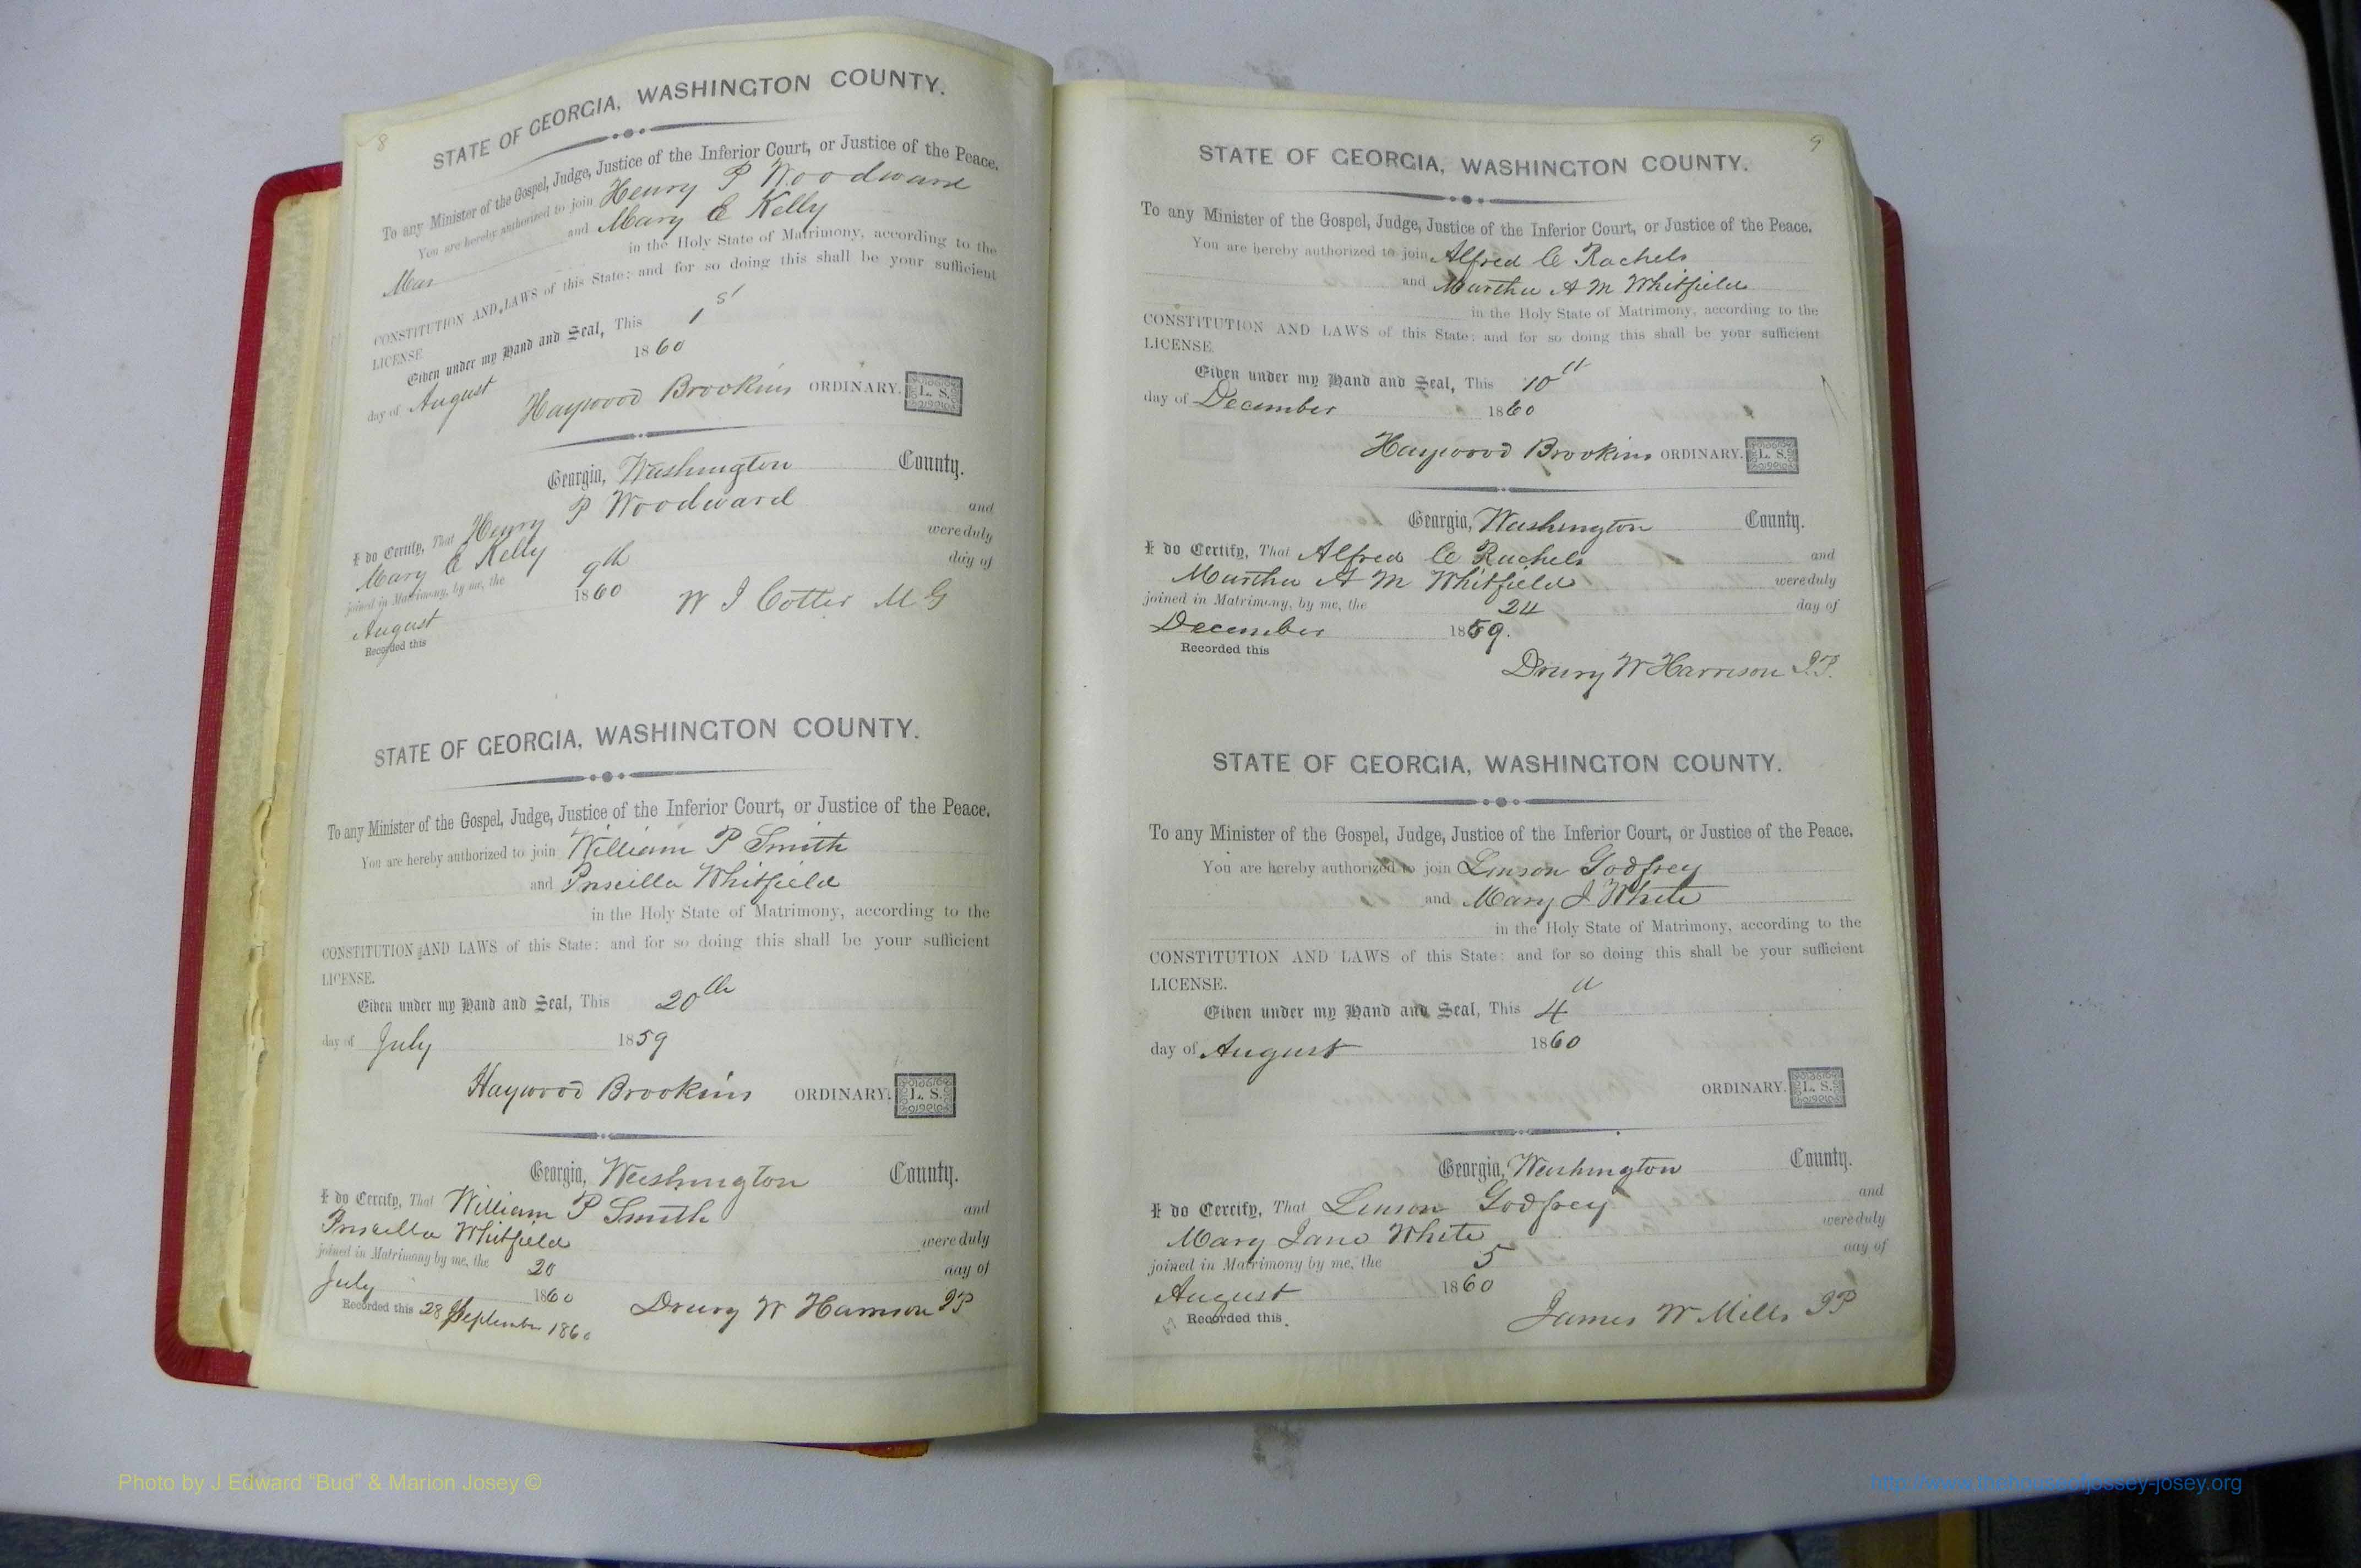 8
STATE OF GEORGIA, WASHINGTON COUNTY.
To any Minister of the Gospel, Judge, Justice of the Inferior Court, or Justice of the Peace.
You are hereby authorized to join Henry P Woodward
and Mary E Kelly
Mar in the Holy State of Matrimony, according to the
CONSTITUTION AND LAWS of this State: and for so doing this shall be your sufficient
LICENSE.
Given under my Hand and Seal, This 1st
day of August 1860
Haywood Brookins ORDINARY. L. S.
Georgia, Washington County.
I do Certify, That Henry P Woodward and
Mary E Kelly were duly
joined in Matrimony, by me, the 9th day of
August 1860 W J Cotter M G
Recorded this
STATE OF GEORGIA, WASHINGTON COUNTY.
To any Minister of the Gospel, Judge, Justice of the Inferior Court, or Justice of the Peace.
You are hereby authorized to join William P Smith
and Priscilla Whitfield
in the Holy State of Matrimony, according to the
CONSTITUTION AND LAWS of this State: and for so doing this shall be your sufficient
LICENSE.
Given under my Hand and Seal, This 20th
day of July 1859
Haywood Brookins ORDINARY. L. S.
Georgia, Washington County.
I do Certify, That William P Smith and
Priscilla Whitfield were duly
joined in Matrimony by me, the 20 day of
July 1860
Recorded this 28 September 1860 Drury W Harrison JP
9
STATE OF GEORGIA, WASHINGTON COUNTY.
To any Minister of the Gospel, Judge, Justice of the Inferior Court, or Justice of the Peace.
You are hereby authorized to join Alfred C Rachels
and Martha A M Whitfield
in the Holy State of Matrimony, according to the
CONSTITUTION AND LAWS of this State: and for so doing this shall be your sufficient
LICENSE.
Given under my Hand and Seal, This 10th
day of December 1860
Haywood Brookins ORDINARY. L. S.
Georgia, Washington County.
I do Certify, That Alfred C Rachels and
Martha A M Whitfield were duly
joined in Matrimony, by me, the 24 day of
December 1859.
Recorded this
Drury W Harrison J.P.
STATE OF GEORGIA, WASHINGTON COUNTY.
To any Minister of the Gospel, Judge, Justice of the Inferior Court, or Justice of the Peace.
You are hereby authorized to join Linson Godfrey
and Mary J White
in the Holy State of Matrimony, according to the
CONSTITUTION AND LAWS of this State: and for so doing this shall be your sufficient
LICENSE.
Given under my Hand and Seal, This 4th
day of August 1860
ORDINARY. L. S.
Georgia, Washington County.
I do Certify, That Linson Godfrey and
Mary Jane White were duly
joined in Matrimony by me, the 5 day of
August 1860
Recorded this James W Mills JP
Photo by J Edward “Bud” & Marion Josey ©
http://www.thehouseofjossey-josey.org